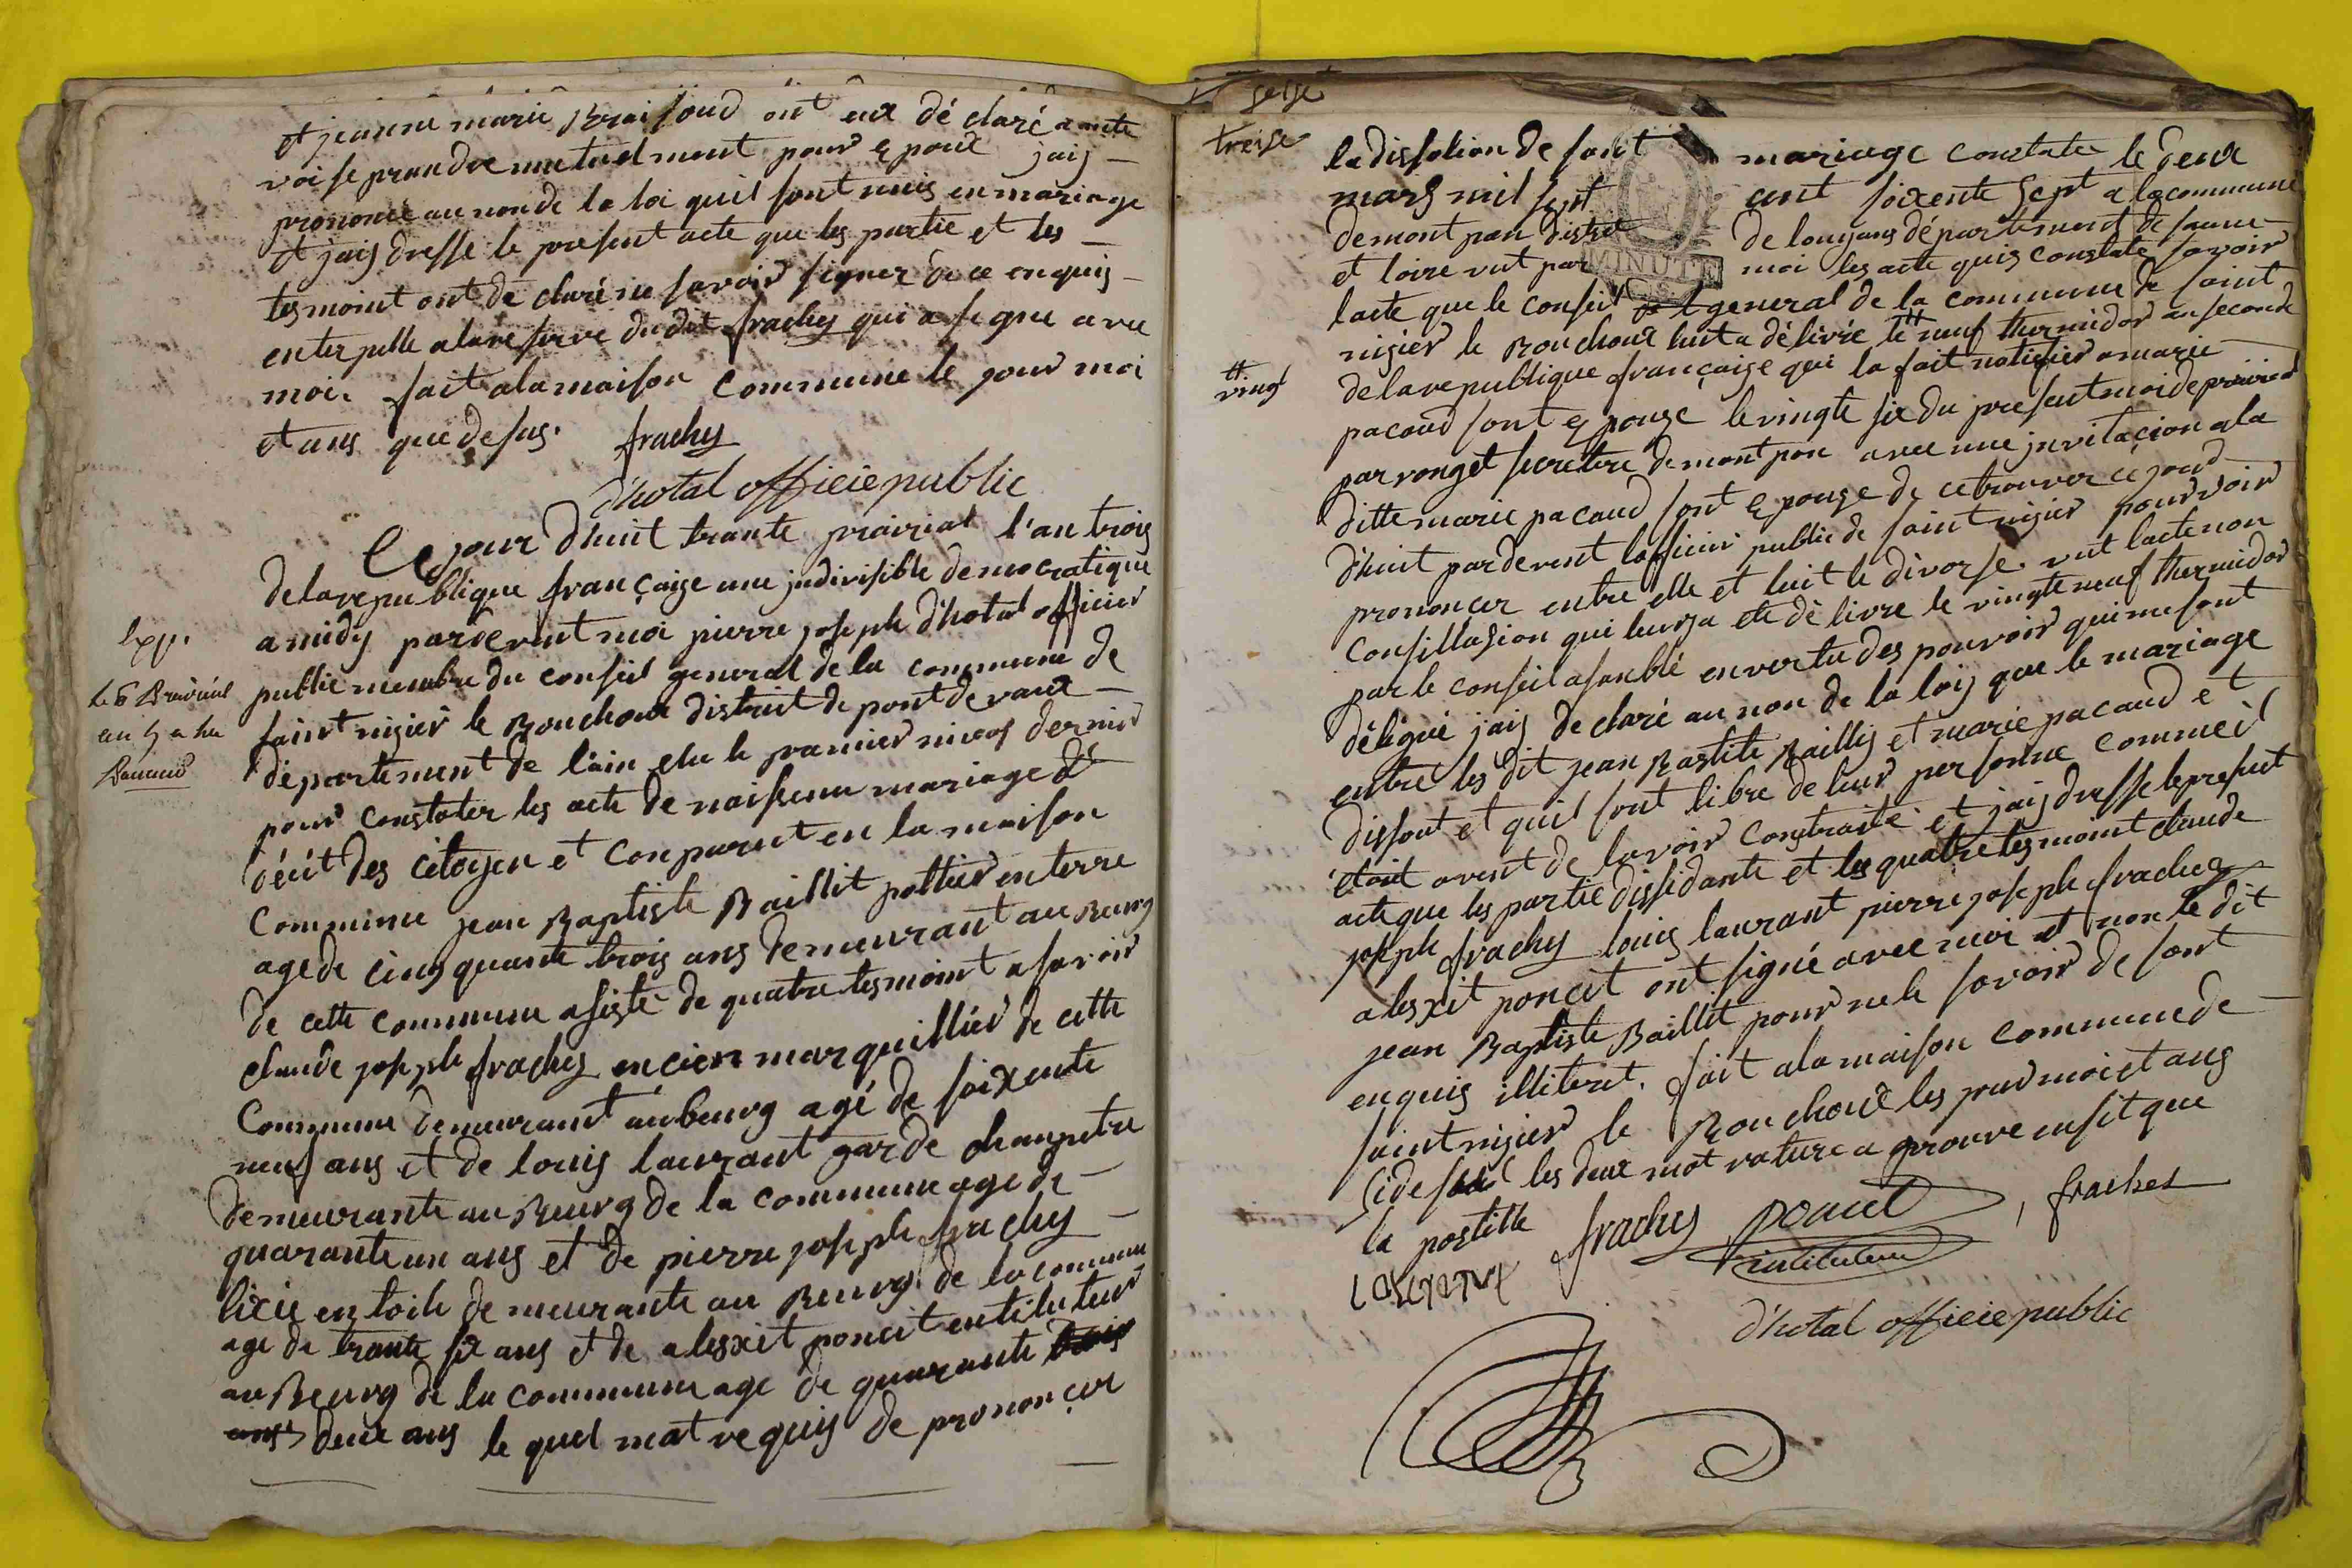 et jeanne marie Braisoud ont eux dé claré a aute
voi se prandre mutuelment pour epoux jaij
prononcé au non de la loi quil sont unis en mariage
et jaij dresse le present acte que les partie et les
tesmoint ont de claré ne savoir signer de ce enquis
enterpelle a la reserve du dit frachy qui a signe avec
moi. fait a la maison commune le jour moi
et ans que desus. frachy
d'hotal officie public
Ce jour d'huit trante prairial l'an trois
de la republique françaize une jndivisible democratique
a midy pardevent moi pierre joseph d'hotal officier
public membre du conseil general de la commune de
saint nizier le Bouchoux district de pont de vaux
département de l'ain elu le pramier nivos dernier
pour constater les acte de naissence mariage et
décit des citoyen et conparut en la maison
commune jean Baptiste Baillit pottier en terre
age de cinq quante trois ans demeurant au Bourg
de cette commune asisté de quatre tesmoint a savoir
claude joseph frachy encien marquillier de cette
commune demeurant au bourg agé de soixente
neuf ans et de louis laurant garde champetre
demeurante au Bourg de la commune age de
quarante un ans et de pierre joseph frachy
lixie en toile demeurante au Bourg de la commune
age de trante six ans et de alesxit poncet entituteur
au Bourg de la commune age de quarante trois
ans deux ans le quel mat requis de prononçer
Exp.
le 6
an 5 a la
seise
treise
la dissolution de sont mariage constater le deux
mars mil sept cent soixente sept a la commune
demont pon distret de louhans département de saune
et loire vut par moi les acte quis constate savoir
lacte que le conseil general de la commune de saint
nizier le Bouchoux luit a délivré le # neuf thermidor an seconde
de la republique françaize qui la fait notifier a marie
pacaud sont epouze le vingte six du present moi de prairial
par ronget secretere de mont pon avec une jnvitaçion a la
ditte marie pacaud sont epouze de ce trouver ce jour
d'huit pardevent lofficier public de saint nizier pour voir
prononcer entre elle et luit le divorse. vut lacte non
consillasion qui leurs a ete dé livre le vingte neuf thermidor
par le conseil asamblé en vertu des pouvoir qui me sont
délégué jaij declaré au non de la loij que le mariage
entre les dit jean Bastite Baillij et marie pacaud et
dissout et quil sont libre de leur personne comme il
étoit avent de lavoir constraité et jaij dresse le present
acte que les partie dissidante et les quatre tesmoint claude
joseph frachy louis laurant pierre joseph frachy
alesxit poncet ont signé avec moi et non le dit
jean Baptiste Baillit pour ne le savoir de sont
enquis illiteret. fait a la maison commune de
saint nizier le Bouchoux les jour moi et ans
les deux mot rature a prouve ensit que
la postille frachy poncet frachet
instituteur
d'hotal officie public
#
vingt
MINUTE